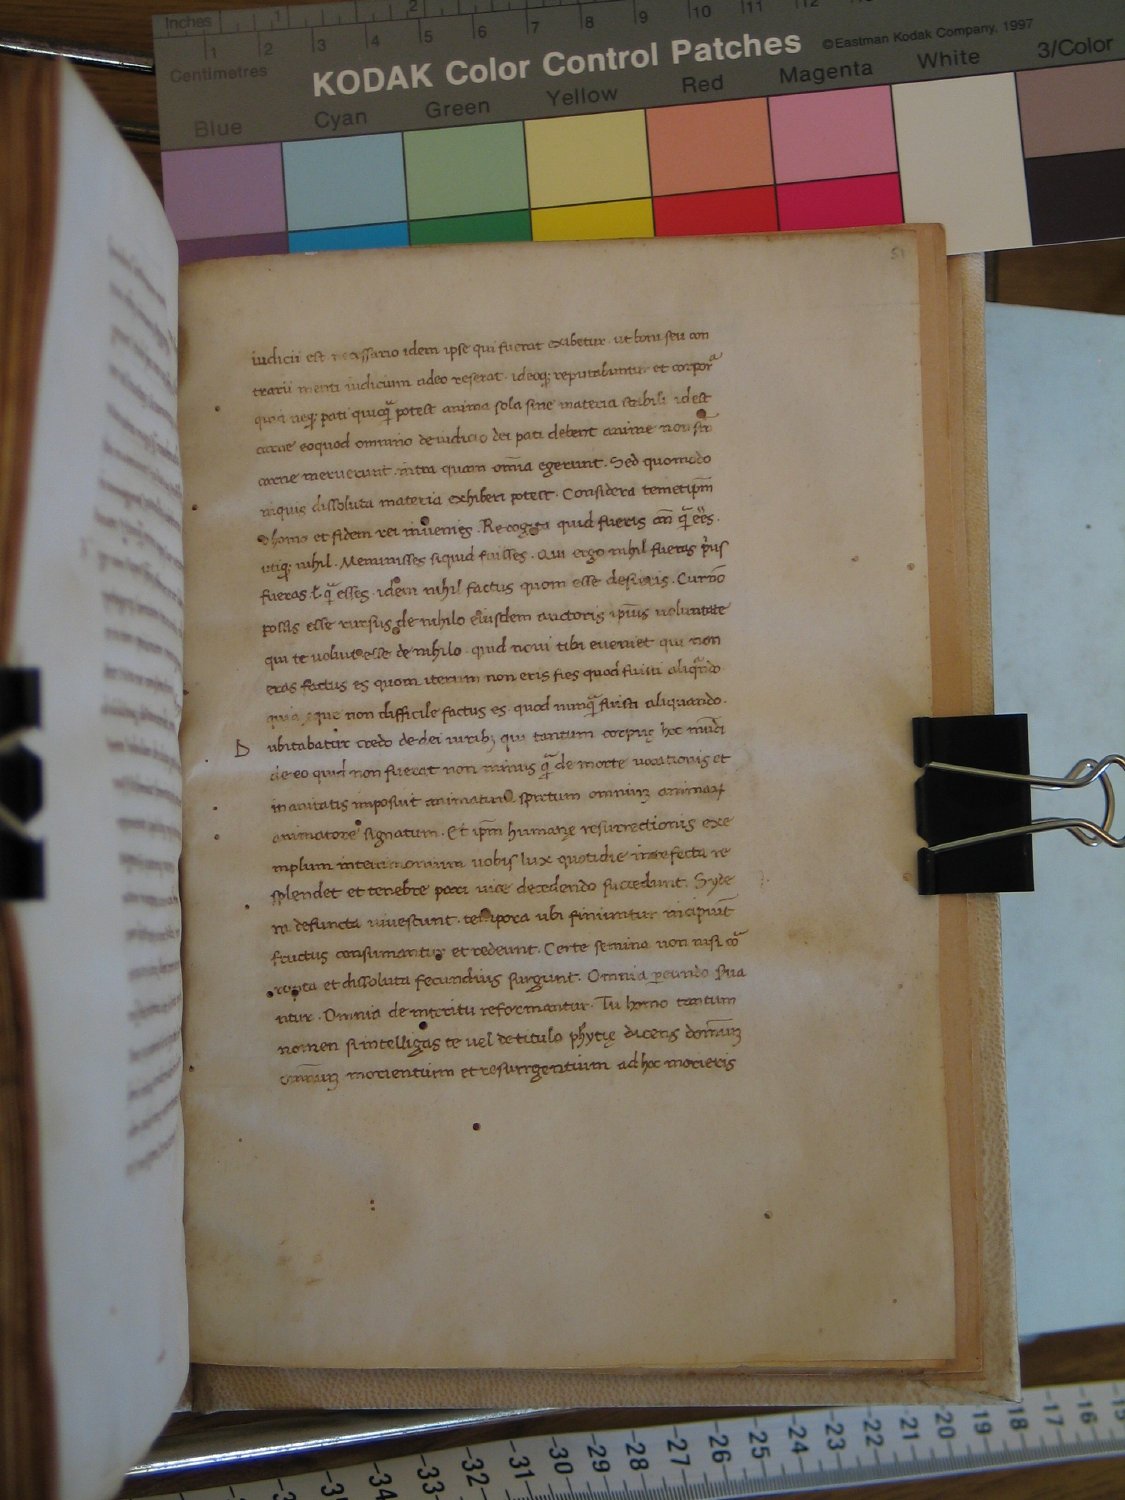 Inches 1 2 3 4 5 6 7 8 9 10 11 12
Centimetres
KODAK Color Control Patches ©Eastman Kodak Company, 1997
Blue Cyan Green Yellow Red Magenta White 3/Color
51
iudicii est necessario idem ipse qui fuerat exibetur. ut boni seu con
trarii meriti iudicium adeo reserat. ideoq; reputabuntur et corpora
quia neq; pati quicqā potest anima sola sine materia stabili idest
carne eoquod omnino de iudicio dei pati debent anime non sin
carne meruerunt. intra quam omīa egerunt. Sed quomodo
inquis dissoluta materia exhiberi potest. Considera temetipm̄
o homo et fidem rei inuenies. Recogita quid fueris añ qā eēs.
utiq; nihil. Meminisses siquid fuisses. Qui ergo nihil fueras p̄us
fueras. ł qā esses. idem nihil factus quom esse desieris. Cur nō
possis esse rursus de nihilo eiusdem auctoris ipīus uoluntate
qui te uoluit esse de nihilo. quid noui tibi eueniet qui non
eras factus es quom iterum non eris fies quod fuisti aliqn̄do
que non difficile factus es. quod nunqā fuisti aliquando.
D ubitabatur credo de dei uirib; qui tantum corpus hoc mūdi
de eo quid non fuerat non minus qā de morte uocationis et
inanitatis imposuit animatum spiritum omnium animar̄
animatore signatum. Et ipm̄ humanę resurrectionis exe
mplum in uobis lux quotidie interfecta re
splendet et tenebre pari uice decedendo succedunt. Syde
ra defuncta uiuescunt. tempora ubi finiuntur incipiūt
fructus consumantur et redeunt. Certe semina non nisi cō
rupta et dissoluta fecundius surgunt. Omnia pereundo s̄ua
ntur. Omnia de interitu reformantur. Tu homo tantum
nomen si intelligas te uel de titulo phytię dicens
morientium et resurrgentium ad hoc morieris
-35 -34 -33 -32 -31 -30 -29 -28 -27 -26 -25 -24 -23 -22 -21 -20 -19 -18 -17 -16 -15